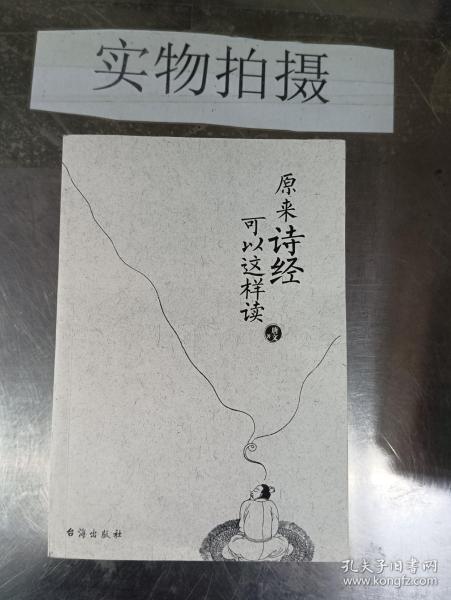 实物拍摄
原来诗经
可以这样读
唐文 著
台海出版社
孔夫子旧书网
www.kongfz.com